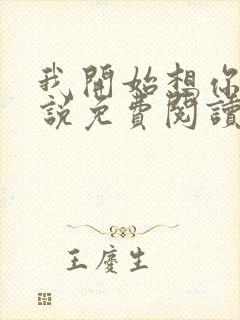 我開始想你
說免費閱讀
王慶生